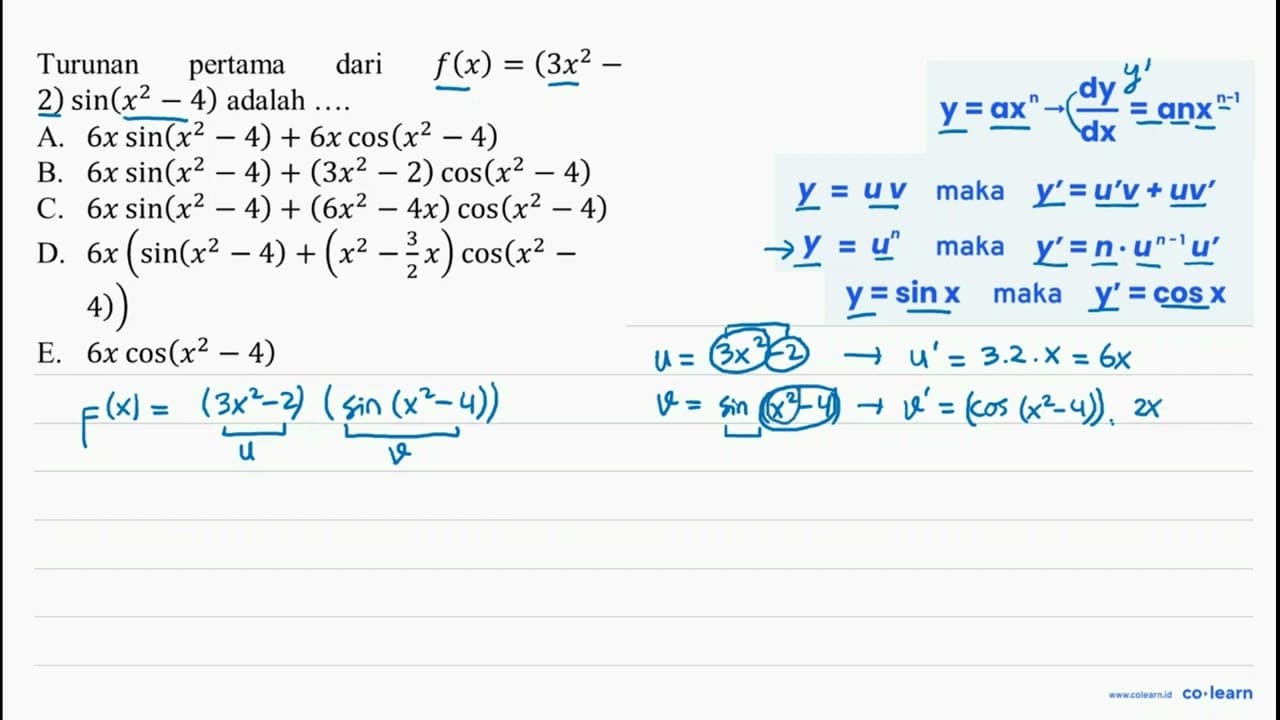 Turunan pertama dari f(x) = (3x² −
2) sin(x² − 4) adalah ....
A. 6x sin(x² − 4) + 6x cos(x² − 4)
B. 6x sin(x² − 4) + (3x² − 2) cos(x² − 4)
C. 6x sin(x² − 4) + (6x² − 4x) cos(x² − 4)
D. 6x(sin(x² − 4) + (x² − 3/2 x) cos(x² −
4))
E. 6x cos(x² − 4)
F(x) = (3x²−2) (sin (x²−4))
u v
y = axⁿ → (dy/dx = anxⁿ⁻¹
y'
y = uv maka y' = u'v + uv'
→ y = uⁿ maka y' = n · uⁿ⁻¹ u'
y = sin x maka y' = cos x
u = 3x²−2 → u' = 3.2.x = 6x
v = sin (x²−4) → v' = (cos (x²−4)). 2x
www.colearn.id co·learn